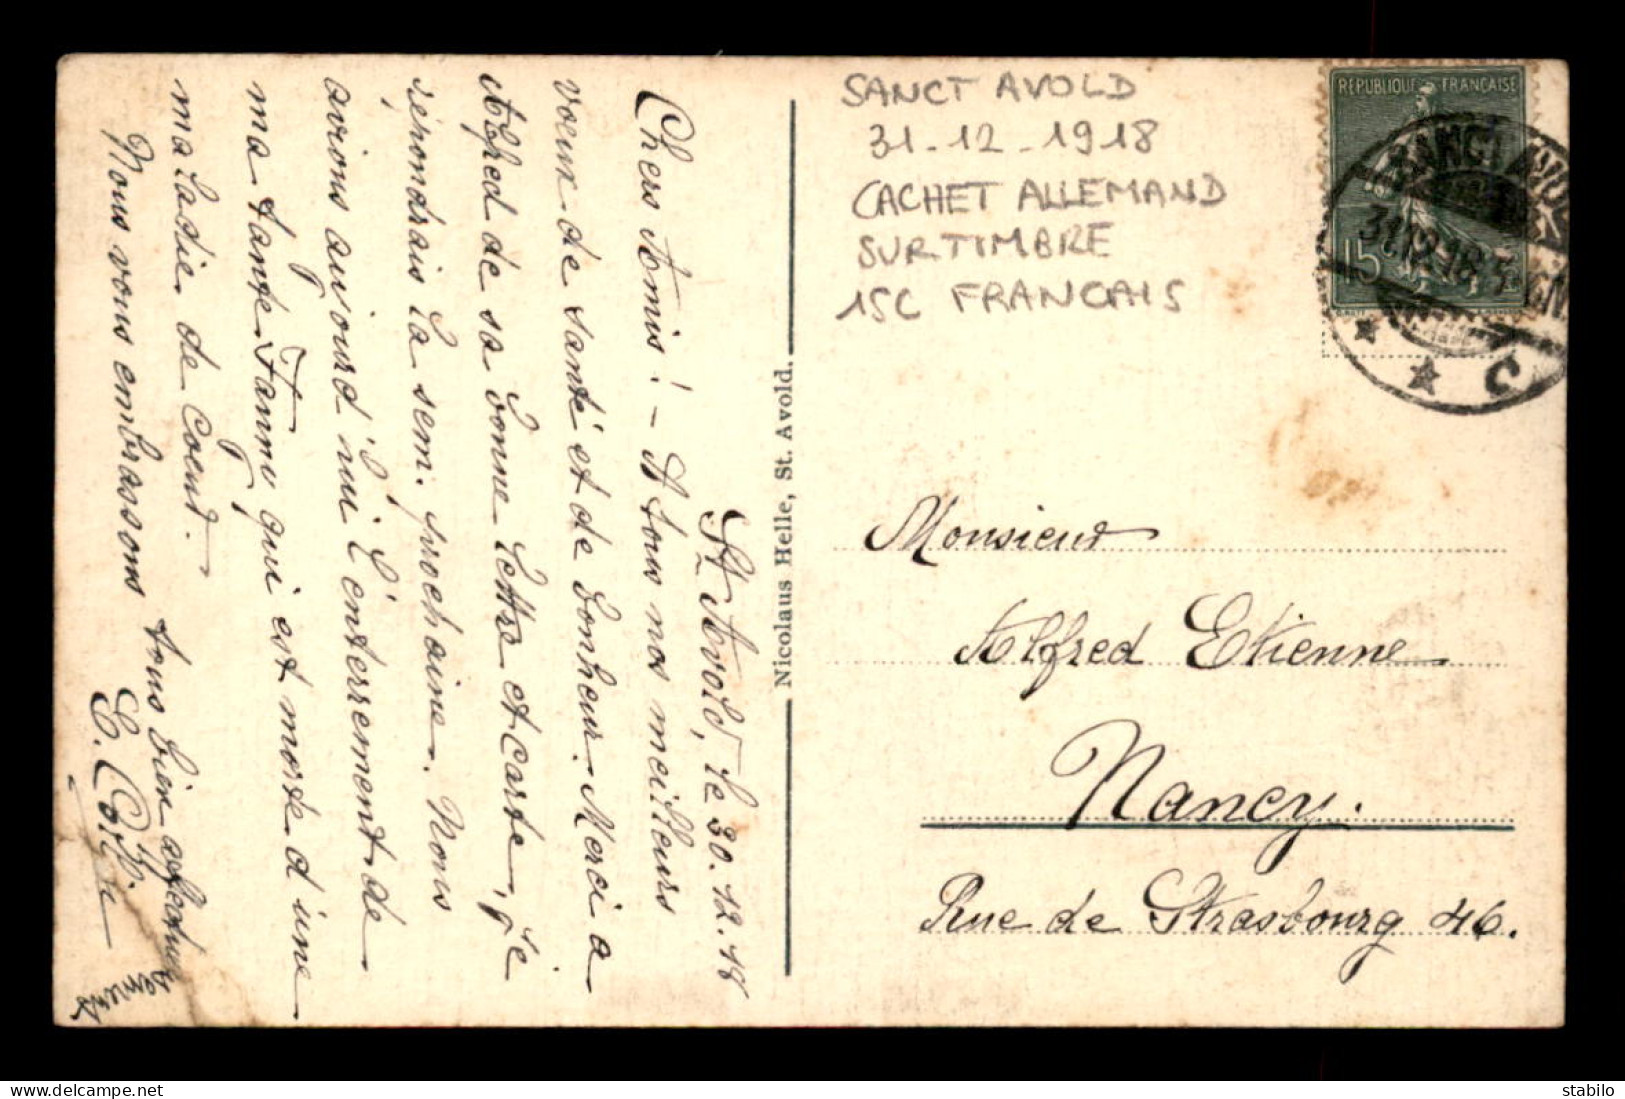 St Avold, le 30.12.18
Chers Amis! - A tous nos meilleurs
voeux de santé et de bonheur. Merci a
Alfred de sa bonne lettre et carte, je
répondrais la sem. prochaine. Nous
avions aujourd'hui l'enterrement de
ma tante Fanny qui est morte d'une
maladie de coeur.
Nous vous embrassons tous bien affectueu
sement
Nicolaus Helle, St. Avold.
SANCT AVOLD
31-12-1918
CACHET ALLEMAND
SUR TIMBRE
15C FRANCAIS
REPUBLIQUE FRANÇAISE
15
SANCT AVOLD
31.12.18.5-6N
* * C
Monsieur
Alfred Etienne
Nancy.
Rue de Strasbourg 46.
stabilo